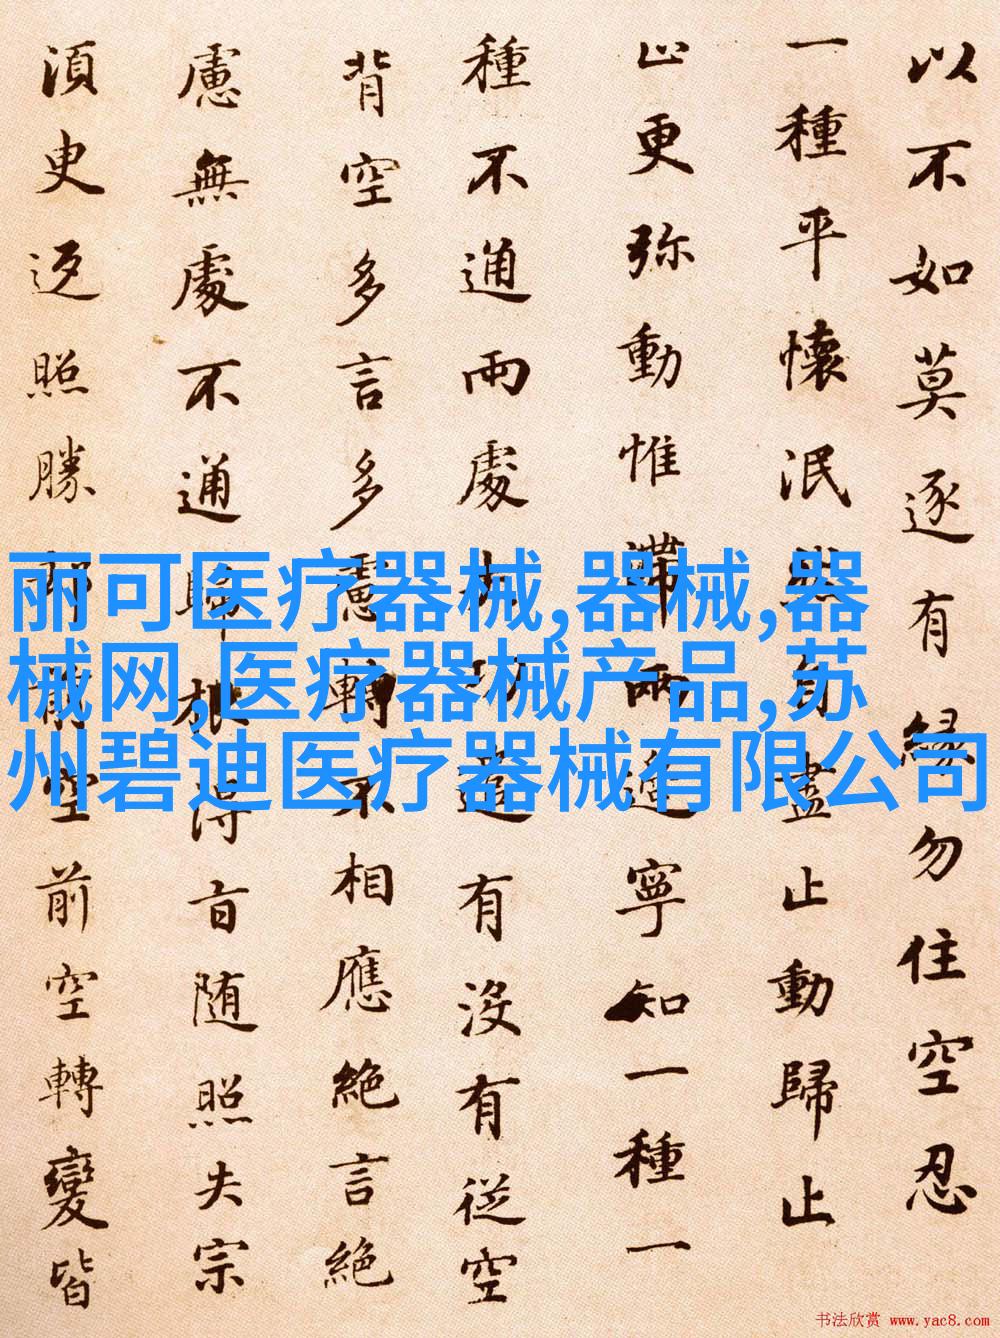 以不如莫逐有緣勿住空忍
一種平懷泯然自盡止動歸止
止更弥動惟滯兩邊寧知一種一
種不通兩處失功遣有没有従空
背空多言多慮轉不相應絶言絶
慮無處不通歸根得旨随照失宗
須臾返照勝却前空前空轉變皆
丽可医疗器械,器械,器
械网,医疗器械产品,苏
州碧迪医疗器械有限公司
书法欣赏 www.yac8.com